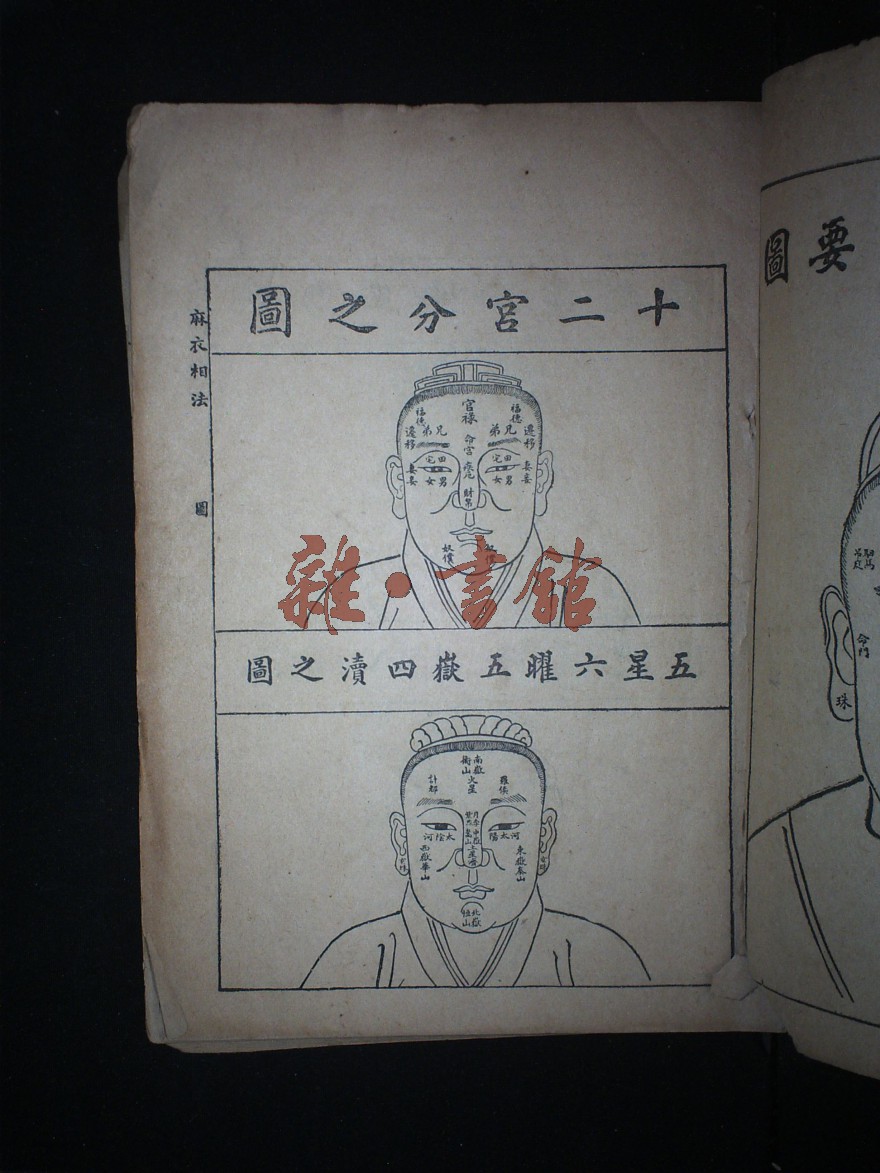 要圖
駙馬
命門
珠
十二宮分之圖
官祿
福德
福德
兄弟
兄弟
遷移
遷移
命宮
田宅
田宅
妻妾
妻妾
男女
男女
財帛
奴僕
雜·書館
五星六曜五嶽四瀆之圖
南嶽衡山
火星
羅㬋
計都
太陽
河
太陰
河
東嶽泰山
西嶽華山
北嶽恒山
麻衣相法
圖